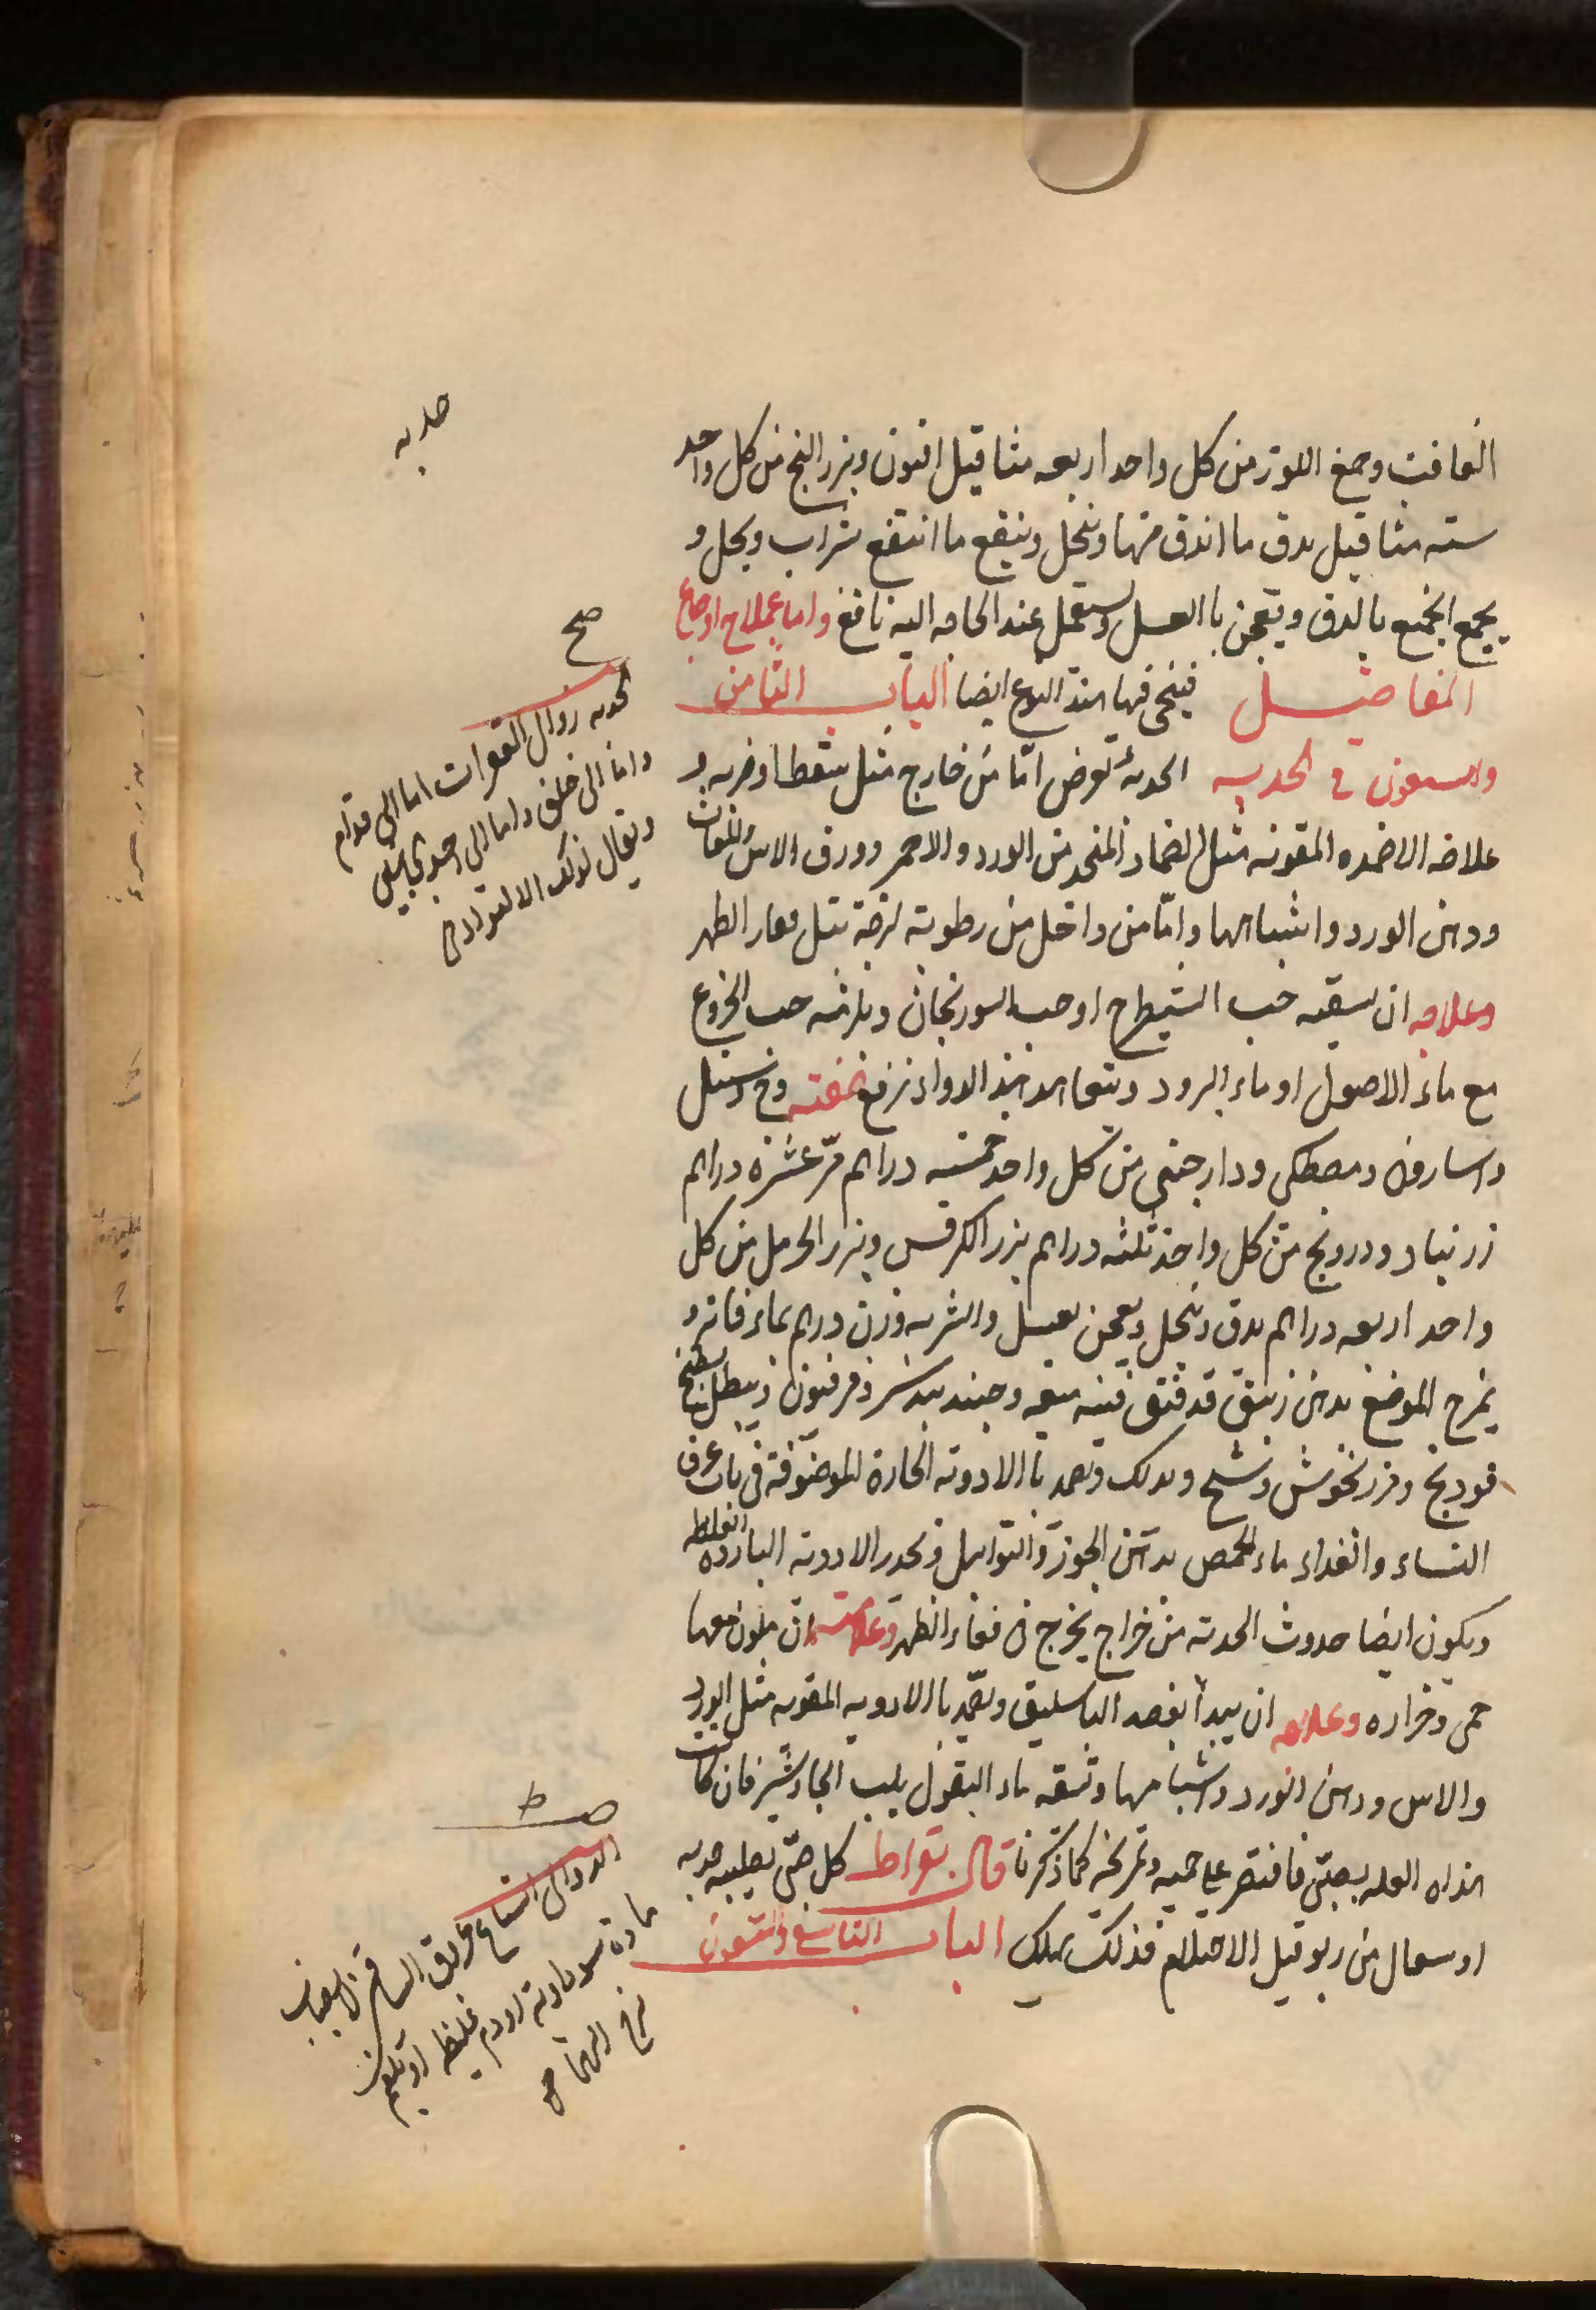 الغافت وصمغ اللوز من كل واحد اربعه مثاقيل افيون وبزر البنج من كل واحد
سته مثاقيل يدق ما اندق منها وينخل وينقع ما انتقع بشراب ويحل و
يجمع الجميع بالدق ويعجن بالعسل ويستعمل عند الحاجه اليه نافع واما علاج اوجاع
المفاصل فينحى فيها هذا النوع ايضا الباب الثامن
والتسعون في الحدبه الحدبة تعرض اما من خارج مثل سقطة او ضربه و
علاجه الاضمده المقويه مثل الضماد المتخذ من الورد والاحمر وورق الاس
ودهن الورد واشباهها واما من داخل من رطوبة لزجة تبل فقار الظهر
وعلاجه ان يسقيه حب الشيطرج او حب السورنجان ويلزمه حب الخروع
مع ماء الاصول او ماء البزور ويتعاهد هذا الدواء وج وسنبل
واسارون ومصطكى ودارصيني من كل واحد خمسه دراهم مر عشرة دراهم
زرنباد ودرونج من كل واحد ثلثه دراهم بزر الكرفس وبزر الحرمل من كل
واحد اربعه دراهم يدق وينخل ويعجن بعسل والشربه وزن درهم بماء فاتر و
يمرخ الموضع بدهن زنبق قد فتق فيه ميعه وجندبيدستر وفرفيون وينطل بطبيخ
فودنج ومرزنخوش وشيح ويدلك ويضمد بالادوية الحارة الموصوفة في باب عرق
النساء والغذاء ماء الحمص بدهن الجوز والتوابل ويحذر الادويه الباردة الغليظه
ويكون ايضا حدوث الحدبة من خراج يخرج في فقار الظهر وعلامته ان يكون معها
حمى وحراره وعلاجه ان يبدأ بفصد الباسليق ويضمد بالادويه المقويه مثل الورد
والاس ودهن الورد واشباهها وتسقيه ماء البقول بلب الخيارشنبر فان كانت
هذه العله بصبي فاقتصر على حميه وتمريخه كما ذكرنا قال بقراط كل صبي يصيبه حدبه
او سعال من ربو قبل الاحتلام فذلك يهلك الباب التاسع والتسعون
حدبه
صح
الحدبه زوال الفقرات اما الى قدام
واما الى خلف واما الى احد الجانبين
ويقال لذلك الالتواء
صط
الدوالى اتساع عروق الساق لانصباب
مادة سوداوية او دم غليظ او بلغم